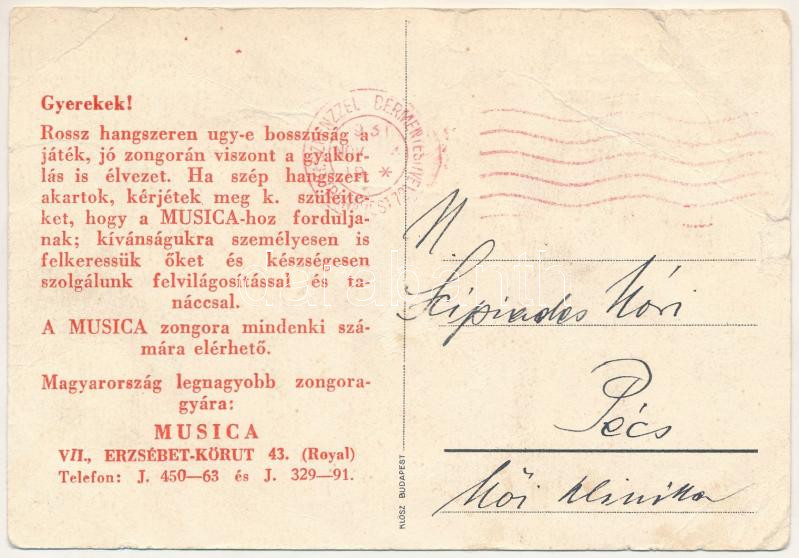 Gyerekek!
Rossz hangszeren ugy-e bosszúság a
játék, jó zongorán viszont a gyakor-
lás is élvezet. Ha szép hangszert
akartok, kérjétek meg k. szüleite-
ket, hogy a MUSICA-hoz fordulja-
nak; kívánságukra személyesen is
felkeressük őket és készségesen
szolgálunk felvilágosítással és ta-
náccsal.
A MUSICA zongora mindenki szá-
mára elérhető.
Magyarország legnagyobb zongora-
gyára:
MUSICA
VII., ERZSÉBET-KÖRUT 43. (Royal)
Telefon: J. 450—63 és J. 329—91.
KLÖSZ BUDAPEST
KÉSZPÉNZZEL BÉRMENTESITVE
BUDAPEST 72
N.
Scipiades Nóri
Pécs
Női klinika